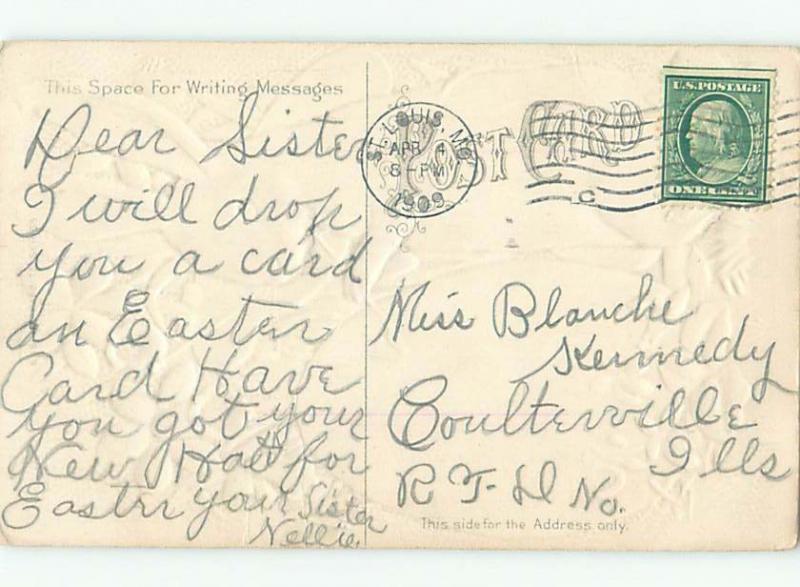 This Space For Writing Messages
Dear Sister
I will drop
you a card
an Easter
Card Have
you got your
New Hatt for
Easter your Sister
Nellie
POST CARD
ST. LOUIS, MO.
APR 4
8-PM
1909
C
U.S. POSTAGE
ONE CENT
Miss Blanche
Kennedy
Coulterville
Ills
R F D No.
This side for the Address only.